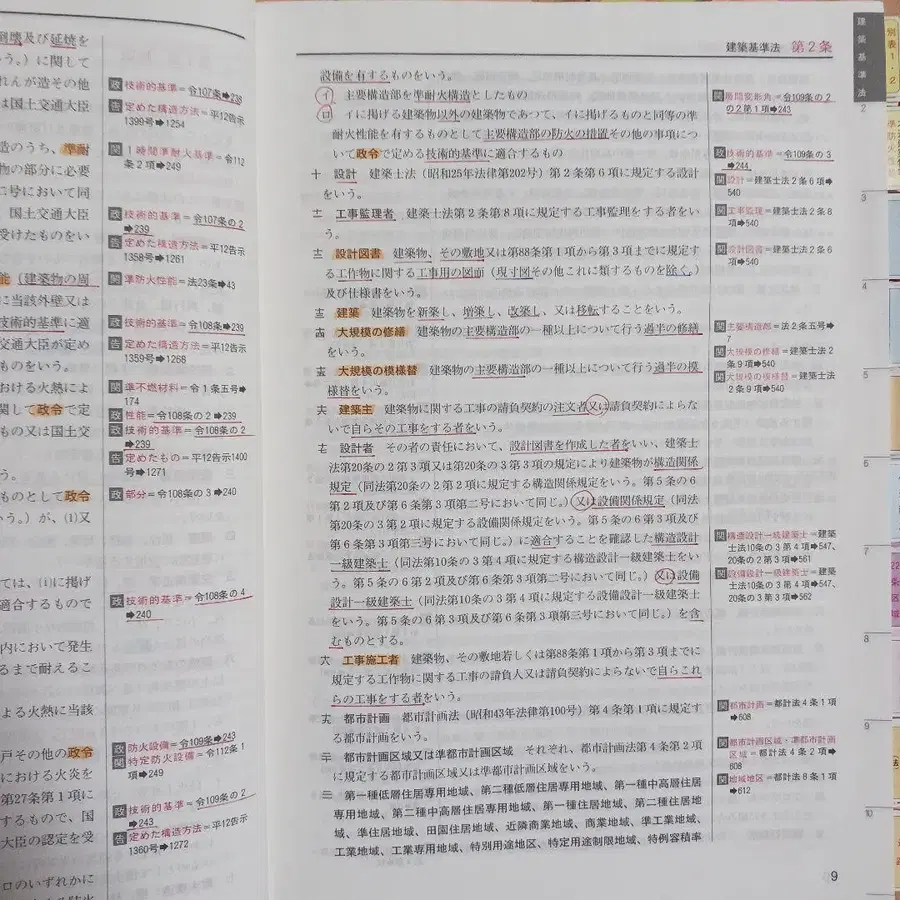 倒壊及び延焼を
いう。）に関して
れんが造その他
は国土交通大臣
造のうち、準耐
物の部分に必要
に号において同
、国土交通大臣
受けたものをい
能（建築物の周
に当該外壁又は
技術的基準に適
交通大臣が定め
ものをいう。
おける火熱によ
関して政令で定
もの又は国土交
う。
ものとして政令
いう。）が、(1)又
ては、(i)に掲げ
適合するもので
内において発生
るまで耐えるこ
よる火熱に当該
戸その他の政令
における火炎を
第27条第１項に
するもので、国
大臣の認定を受
ロのいずれかに
政 技術的基準＝令107条➡238
告 定めた構造方法＝平12告示
1399号➡1254
関 １時間準耐火基準＝令112
条２項➡249
政 技術的基準＝令107条の２
➡239
告 定めた構造方法＝平12告示
1358号➡1261
関 準防火性能＝法23条➡43
政 技術的基準＝令108条➡239
告 定めた構造方法＝平12告示
1359号➡1268
関 準不燃材料＝令１条五号➡
174
政 性能＝令108条の２➡239
政 技術的基準＝令108条の２
➡239
告 定めたもの＝平12告示1400
号➡1271
政 部分＝令108条の３➡240
政 技術的基準＝令108条の４
➡240
政 防火設備＝令109条➡243
関 特定防火設備＝令112条１
項➡249
政 技術的基準＝令109条の２
➡243
告 定めた構造方法＝平12告示
1360号➡1272
建築基準法 第２条
設備を有するものをいう。
イ 主要構造部を準耐火構造としたもの
ロ イに掲げる建築物以外の建築物であつて、イに掲げるものと同等の準
耐火性能を有するものとして主要構造部の防火の措置その他の事項につ
いて政令で定める技術的基準に適合するもの
十 設計 建築士法（昭和25年法律第202号）第２条第６項に規定する設計
をいう。
十一 工事監理者 建築士法第２条第８項に規定する工事監理をする者をい
う。
十二 設計図書 建築物、その敷地又は第88条第１項から第３項までに規定す
る工作物に関する工事用の図面（現寸図その他これに類するものを除く。）
及び仕様書をいう。
十三 建築 建築物を新築し、増築し、改築し、又は移転することをいう。
十四 大規模の修繕 建築物の主要構造部の一種以上について行う過半の修繕
をいう。
十五 大規模の模様替 建築物の主要構造部の一種以上について行う過半の模
様替をいう。
十六 建築主 建築物に関する工事の請負契約の注文者又は請負契約によらな
いで自らその工事をする者をいう。
十七 設計者 その者の責任において、設計図書を作成した者をいい、建築士
法第20条の２第３項又は第20条の３第３項の規定により建築物が構造関係
規定（同法第20条の２第２項に規定する構造関係規定をいう。第５条の６
第２項及び第６条第３項第二号において同じ。）又は設備関係規定（同法
第20条の３第２項に規定する設備関係規定をいう。第５条の６第３項及び
第６条第３項第三号において同じ。）に適合することを確認した構造設計
一級建築士（同法第10条の３第４項に規定する構造設計一級建築士をい
う。第５条の６第２項及び第６条第３項第二号において同じ。）又は設備
設計一級建築士（同法第10条の３第４項に規定する設備設計一級建築士
をいう。第５条の６第３項及び第６条第３項第三号において同じ。）を含
むものとする。
十八 工事施工者 建築物、その敷地若しくは第88条第１項から第３項までに
規定する工作物に関する工事の請負人又は請負契約によらないで自らこれ
らの工事をする者をいう。
十九 都市計画 都市計画法（昭和43年法律第100号）第４条第１項に規定す
る都市計画をいう。
二十 都市計画区域又は準都市計画区域 それぞれ、都市計画法第４条第２項
に規定する都市計画区域又は準都市計画区域をいう。
二十一 第一種低層住居専用地域、第二種低層住居専用地域、第一種中高層住居
専用地域、第二種中高層住居専用地域、第一種住居地域、第二種住居地
域、準住居地域、田園住居地域、近隣商業地域、商業地域、準工業地域、
工業地域、工業専用地域、特別用途地区、特定用途制限地域、特例容積率
関 層間変形角＝令109条の２
の２第１項➡243
政 技術的基準＝令109条の３
➡244
関 設計＝建築士法２条６項➡
540
関 工事監理＝建築士法２条８
項➡540
関 設計図書＝建築士法２条６
項➡540
関 主要構造部＝法２条五号➡
7
関 大規模の修繕＝建築士法２
条９項➡540
関 大規模の模様替＝建築士法
２条９項➡540
関 構造設計一級建築士＝建築
士法10条の３第４項➡547、
20条の２第３項➡561
関 設備設計一級建築士＝建築
士法10条の３第４項➡547、
20条の３第３項➡562
関 都市計画＝都計法４条１項
➡608
関 都市計画区域・準都市計画
区域＝都計法４条２項➡
608
関 地域地区＝都計法８条１項
➡612
9
建築基準法
2
3
4
5
6
7
8
9
10
別表１・２